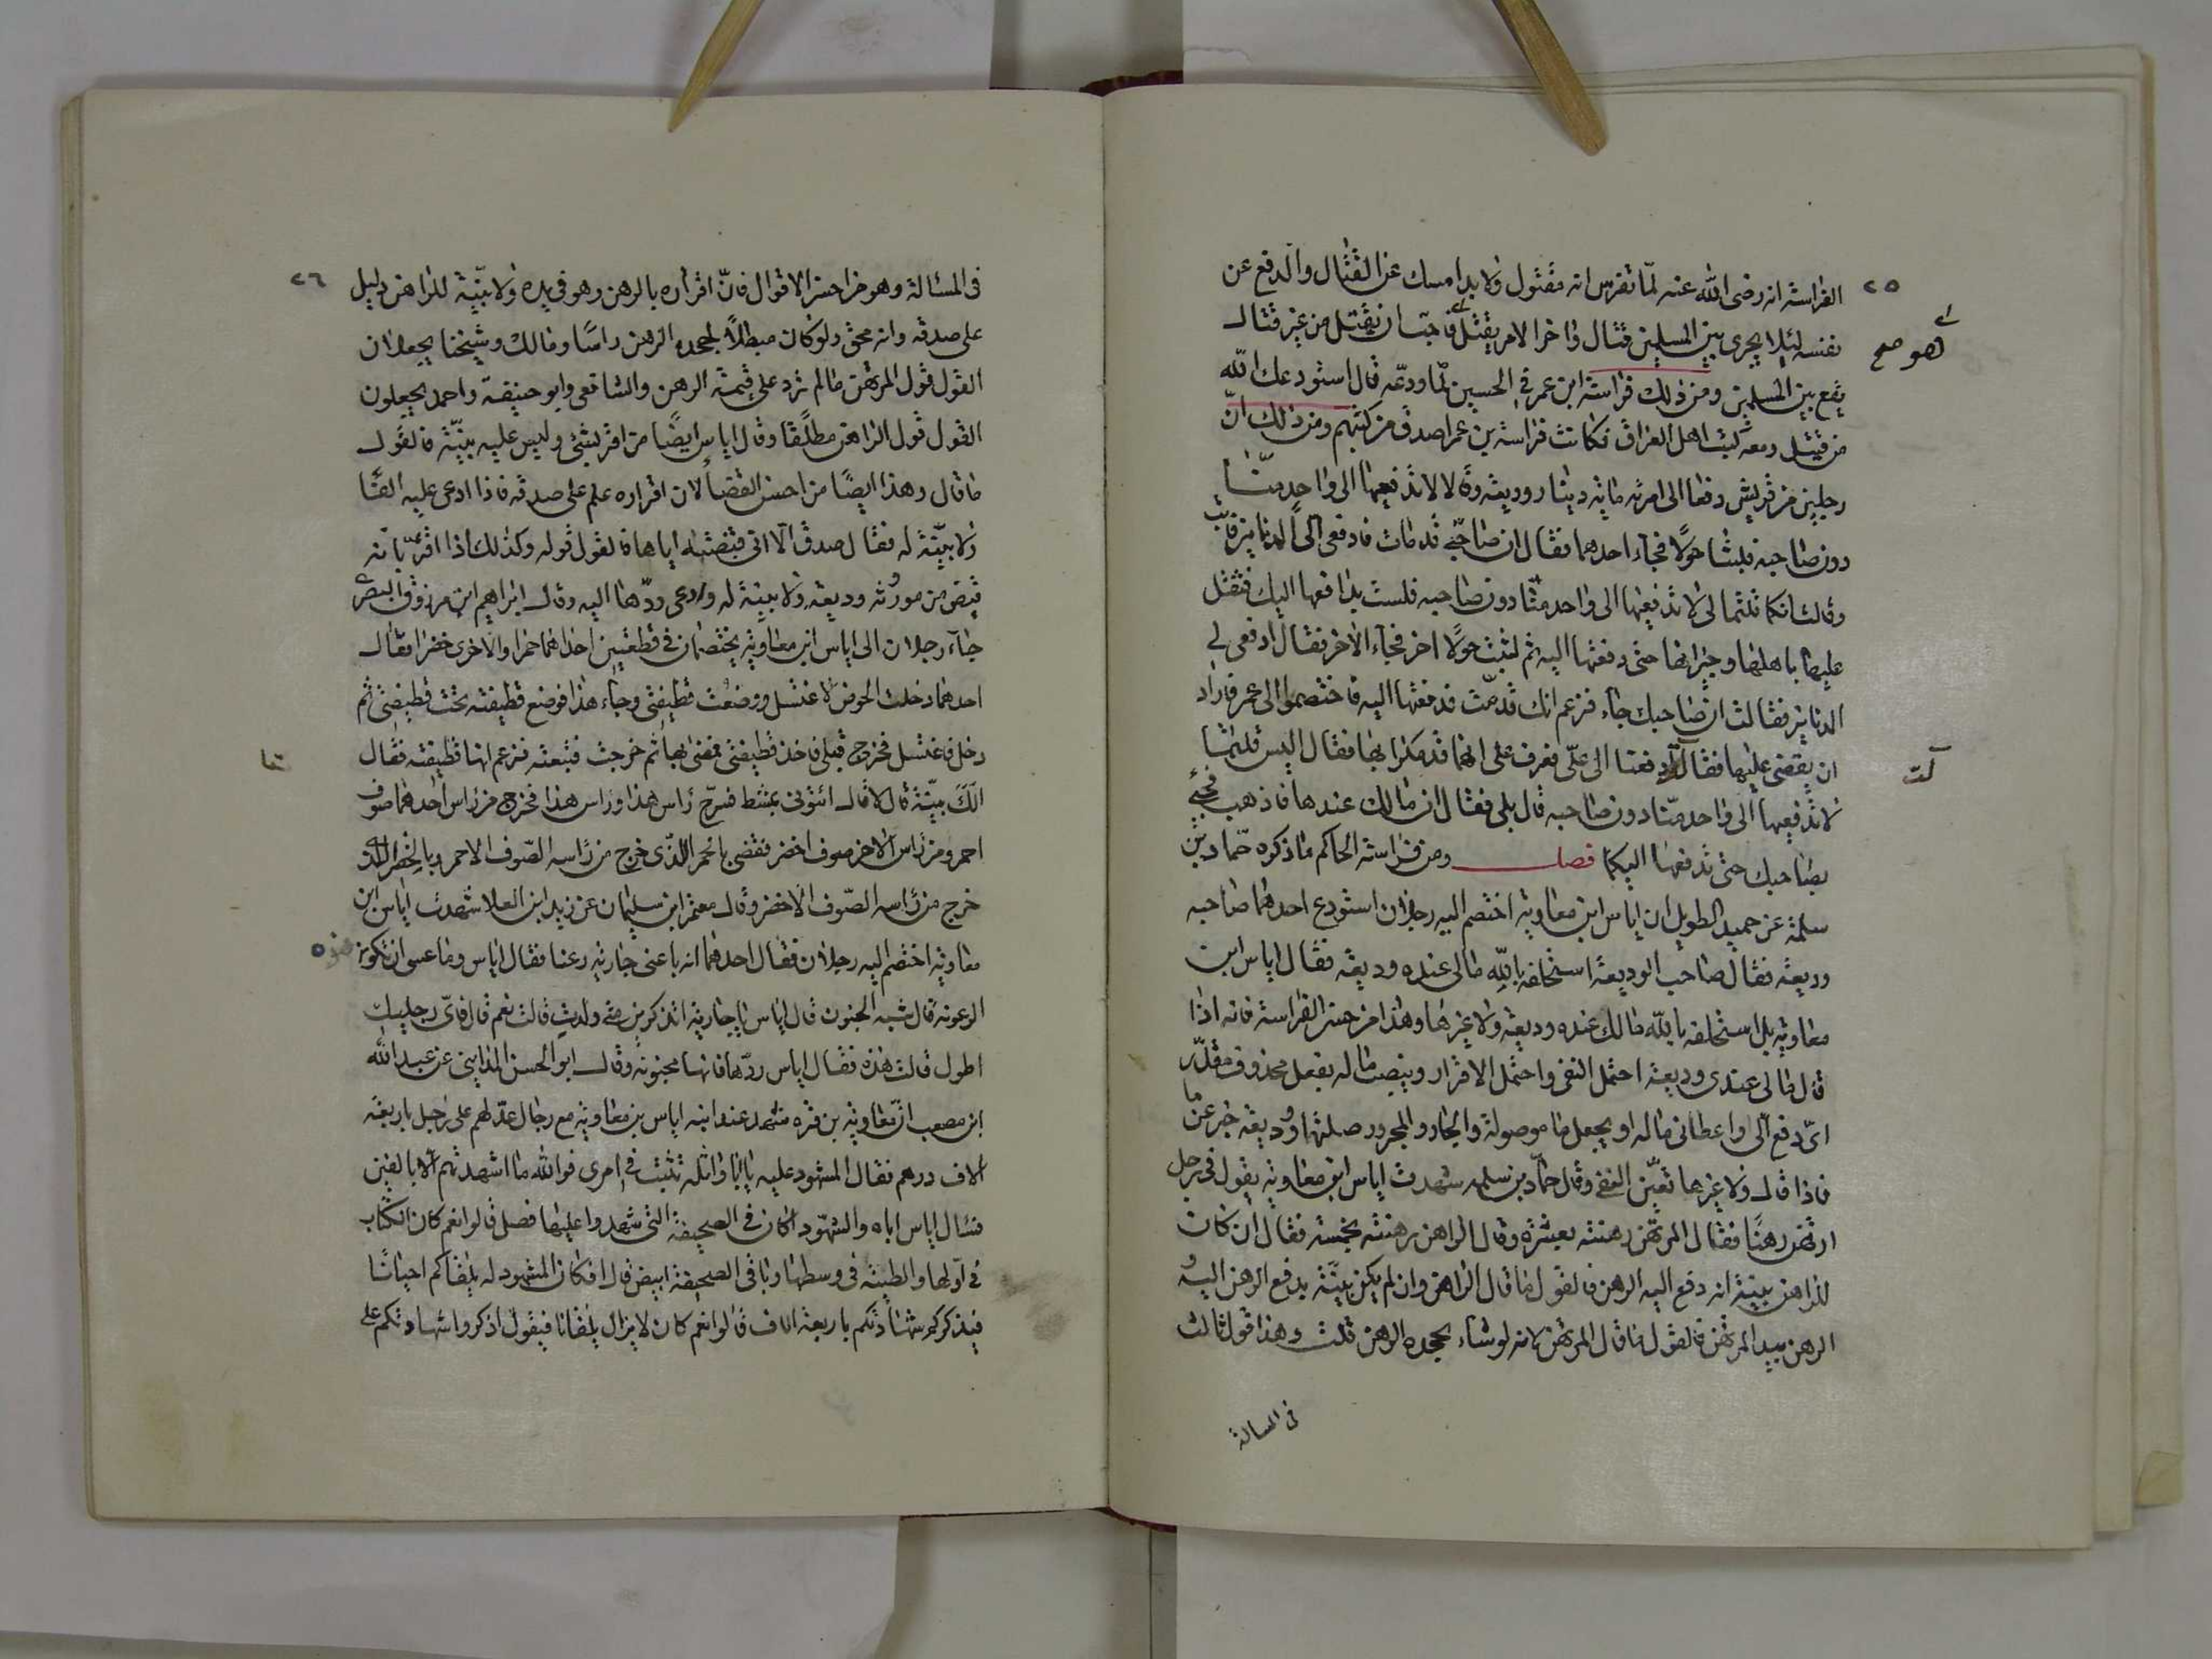 ٢٥
الفراسة انه رضى الله عنه لمّا تفرس انه مقتول ولا بد امسك عن القتال والدفع عن
نفسه لئلا يجرى بين المسلمين قتال واخر الامر يقتل فاحب ان يقتل من غير قتال
يقع بين المسلمين ومن ذلك فراسة ابن عمر في الحسين لمّا ودعّه قال استودعك الله
من قتيل ومعه كتب اهل العراق فكانت فراسة بن عمر اصدق من كتبهم ومن ذلك انّ
رجلين من قريش دفعا الى امرئه مائه دينار وديعة وقالا لا تدفعيها الى واحد منّا
دون صاحبه فلبثا حولًا فجآء احدهما فقال ان صاحبي قد مات فادفعى الىّ الدنانير فابت
وقالت انكما قلتما لى لا تدفعيها الى واحد منّا دون صاحبه فلست بدافعها اليك فثقل
عليها باهلها وجيرانها حتى دفعتها اليه ثم لبثت حولًا اخر فجآء الاخر فقال ادفعى لي
الدنانير فقالت ان صاحبك جاء فزعم انك قدمّت فدفعتها اليه فاختصموا الى عمر فاراد
ان يقضى عليها فقال دفعنا الى علىّ فعرف على انهما قد مكرا بها فقال اليس قلتما
لا تدفعيها الى واحد منّا دون صاحبه قال بلى فقال ان مالك عندها فاذهب فجئ
بصاحبك حتى تدفعها اليكما فصل ومن فراسة الحاكم ما ذكره حمّاد بن
سلمة عن حميد الطويل ان اياس ابن معاوية اختصم اليه رجلان استودع احدهما صاحبه
وديعة فقال صاحب الوديعة استحلفه بالله مالى عنده وديعة فقال اياس ابن
معاوية بل استحلفه بالله مالك عنده وديعة ولا غيرها وهذا من حسن الفراسة فانه اذا
قال مالى عندى وديعة احتمل النفى واحتمل الاقرار وينصب ماله بفعل محذوف مقدّر
اىّ دفع الى واعطانى ماله او يجعل ما موصولة والجار والمجرور صلتها ووديعة خبر عن ما
فاذا قال ولا غيرها تعيّن النفى وقال حمّاد بن سلمه شهدت اياس ابن معاوية يقول في رجل
ارتهن رهنًا فقال المرتهن رهنته بعشرة وقال الراهن رهنته بخمسة فقال ان كان
للراهن بينة انه دفع اليه الرهن فالقول ما قال الراهن وان لم يكن بيّنة بدفع الرهن اليه و
الرهن بيد المرتهن فالقول ما قال المرتهن لانه لو شاء بجحده الرهن قلت وهذا قول ثالث
في المسالة
٢٦
فى المسئالة وهو من احسن الاقوال فانّ اقراره بالرهن وهو في يده ولا بيّنة للراهن دليل
على صدقه وانه محق ولو كان مبطلًا لجحده الرهن راسًا ومالك وشيخنا يجعلان
القول قول المرتهن مالم تزد على قيمة الرهن والشافعى وابو حنيفة واحمد يجعلون
القول قول الراهن مطلقًا وقال اياس ايضًا من اقر بشئ وليس عليه بيّنة فالقول
ما قال وهذا ايضًا من احسن القضأ لان اقراره علم على صدقه فاذا ادعى عليه الفًا
ولا بيّنة له فقال صدق الا انى قبضته اياها فالقول قوله وكذلك اذا اقرّ بانه
قبض من مورّثه وديعة ولا بينة له وادعى ردّها اليه وقال ابراهيم ابن مرزوق البصرى
جاء رجلان الى اياس ابن معاوية يختصمان في قطيفتين احداهما حمرا والاخرى خضرا فقال
احدهما دخلت الحوض لاغتسل ووضعت قطيفتى وجاء هذا فوضع قطيفته تحت قطيفتى ثم
دخل فاغتسل فخرج قبلى فاخذ قطيفتى فمضى بها ثم خرجت فتبعته فزعم انها قطيفته فقال
الكَ بيّنة قال لا قال ائتونى بمشط فسرّح رأس هذا وراس هذا فخرج من راس احدهما صوف
احمر ومن رأس الاخر صوف اخضر فقضى بالحمرا للّذى خرج من رأسه الصّوف الاحمر وبالخضرا للذى
خرج من رأسه الصّوف الاخضر وقال معتمر ابن سليمان عن زيد ابن العلا شهدت اياس ابن
معاوية اختصم اليه رجلان فقال احدهما انه باعنى جارية رعنا فقال اياس وما عسى ان تكون هذه
الرعونة قال شبه الجنون قال اياس ياجارية اتذكرين متى ولدتِ قالت نعم قال فاىّ رجليك
اطول قالت هذه فقال اياس ردّها فانها مجنونة وقال ابو الحسن المداينى عن عبد الله
ابن مصعب انّ معاوية بن قره شهد عند ابنه اياس بن معاوية مع رجال عدّلهم على رجل باربعة
الاف درهم فقال المشهود عليه يا ابا واثله تثبت في امرى فوالله ما اشهدتهم الا بالفين
فسئال اياس اباه والشهود اكان في الصحيفة التى شهدوا عليها فضل قالوا نعم كان الكتاب
في اوّلها والطينة في وسطها وباقى الصحيفة ابيض قال افكان المشهود له يلقاكم احيانًا
فيذكركم شهادتكم باربعة الاف قالوا نعم كان لا يزال يلقانا فيقول اذكروا شهادتكم على